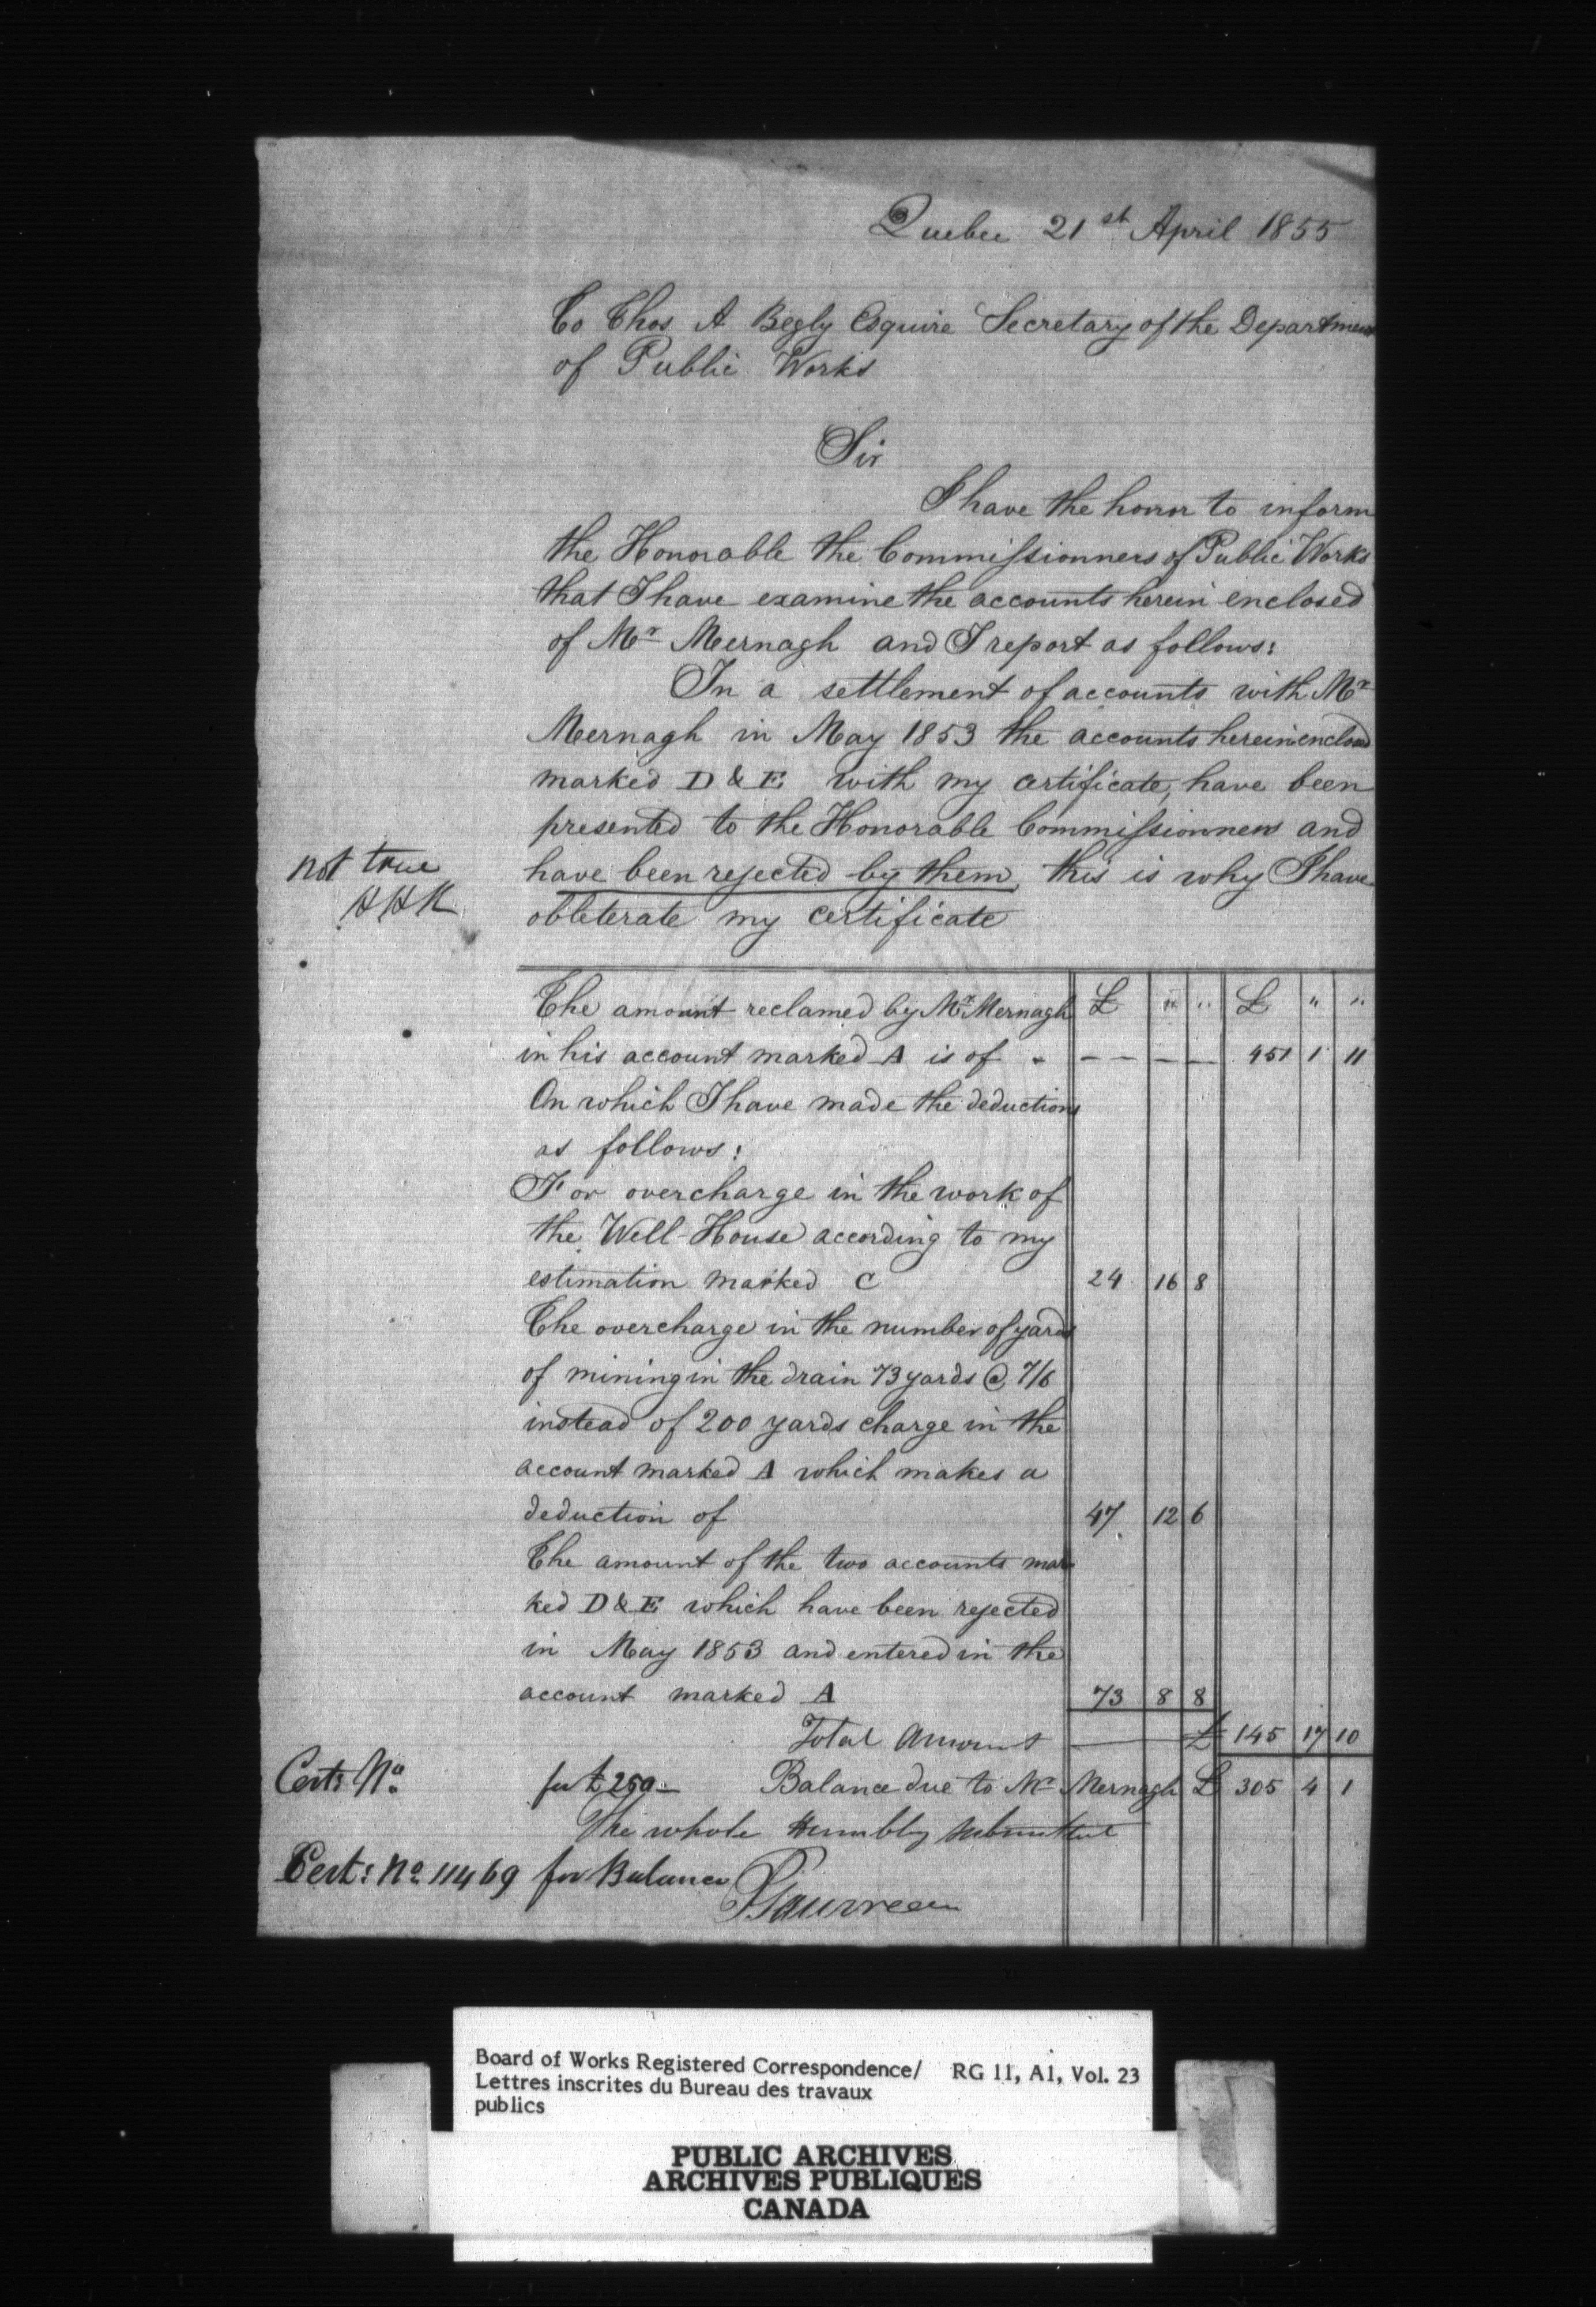 Quebec 21st April 1855
To Thos A Begly Esquire Secretary of the Department
of Public Works
Sir
I have the honor to inform
the Honorable the Commissionners of Public Works
that I have examine the accounts herein enclosed
of Mr Mernagh and I report as follows:
In a settlement of accounts with Mr
Mernagh in May 1853 the accounts herein enclosed
marked D & E with my certificate, have been
presented to the Honorable Commissionners and
not true have been rejected by them, this is why I have
HHK obliterate my certificate
The amount reclamed by Mr Mernagh £ " " £ " "
in his account marked A is of - — — — — 451 1 11
On which I have made the deductions
as follows:
For overcharge in the work of
the Well-House according to my
estimation marked C 24 16 8
The overcharge in the number of yards
of mining in the drain 73 yards @ 7/6
instead of 200 yards charge in the
account marked A which makes a
deduction of 47 12 6
The amount of the two accounts mar
ked D & E which have been rejected
in May 1853 and entered in the
account marked A 73 8 8
Total Amount £ 145 17 10
Cert: No. for £250 — Balance due to Mr Mernagh £ 305 4 1
The whole Humbly submitted
Cert: No 11469 for Balance
Board of Works Registered Correspondence/ RG 11, A1, Vol. 23
Lettres inscrites du Bureau des travaux
publics
PUBLIC ARCHIVES
ARCHIVES PUBLIQUES
CANADA